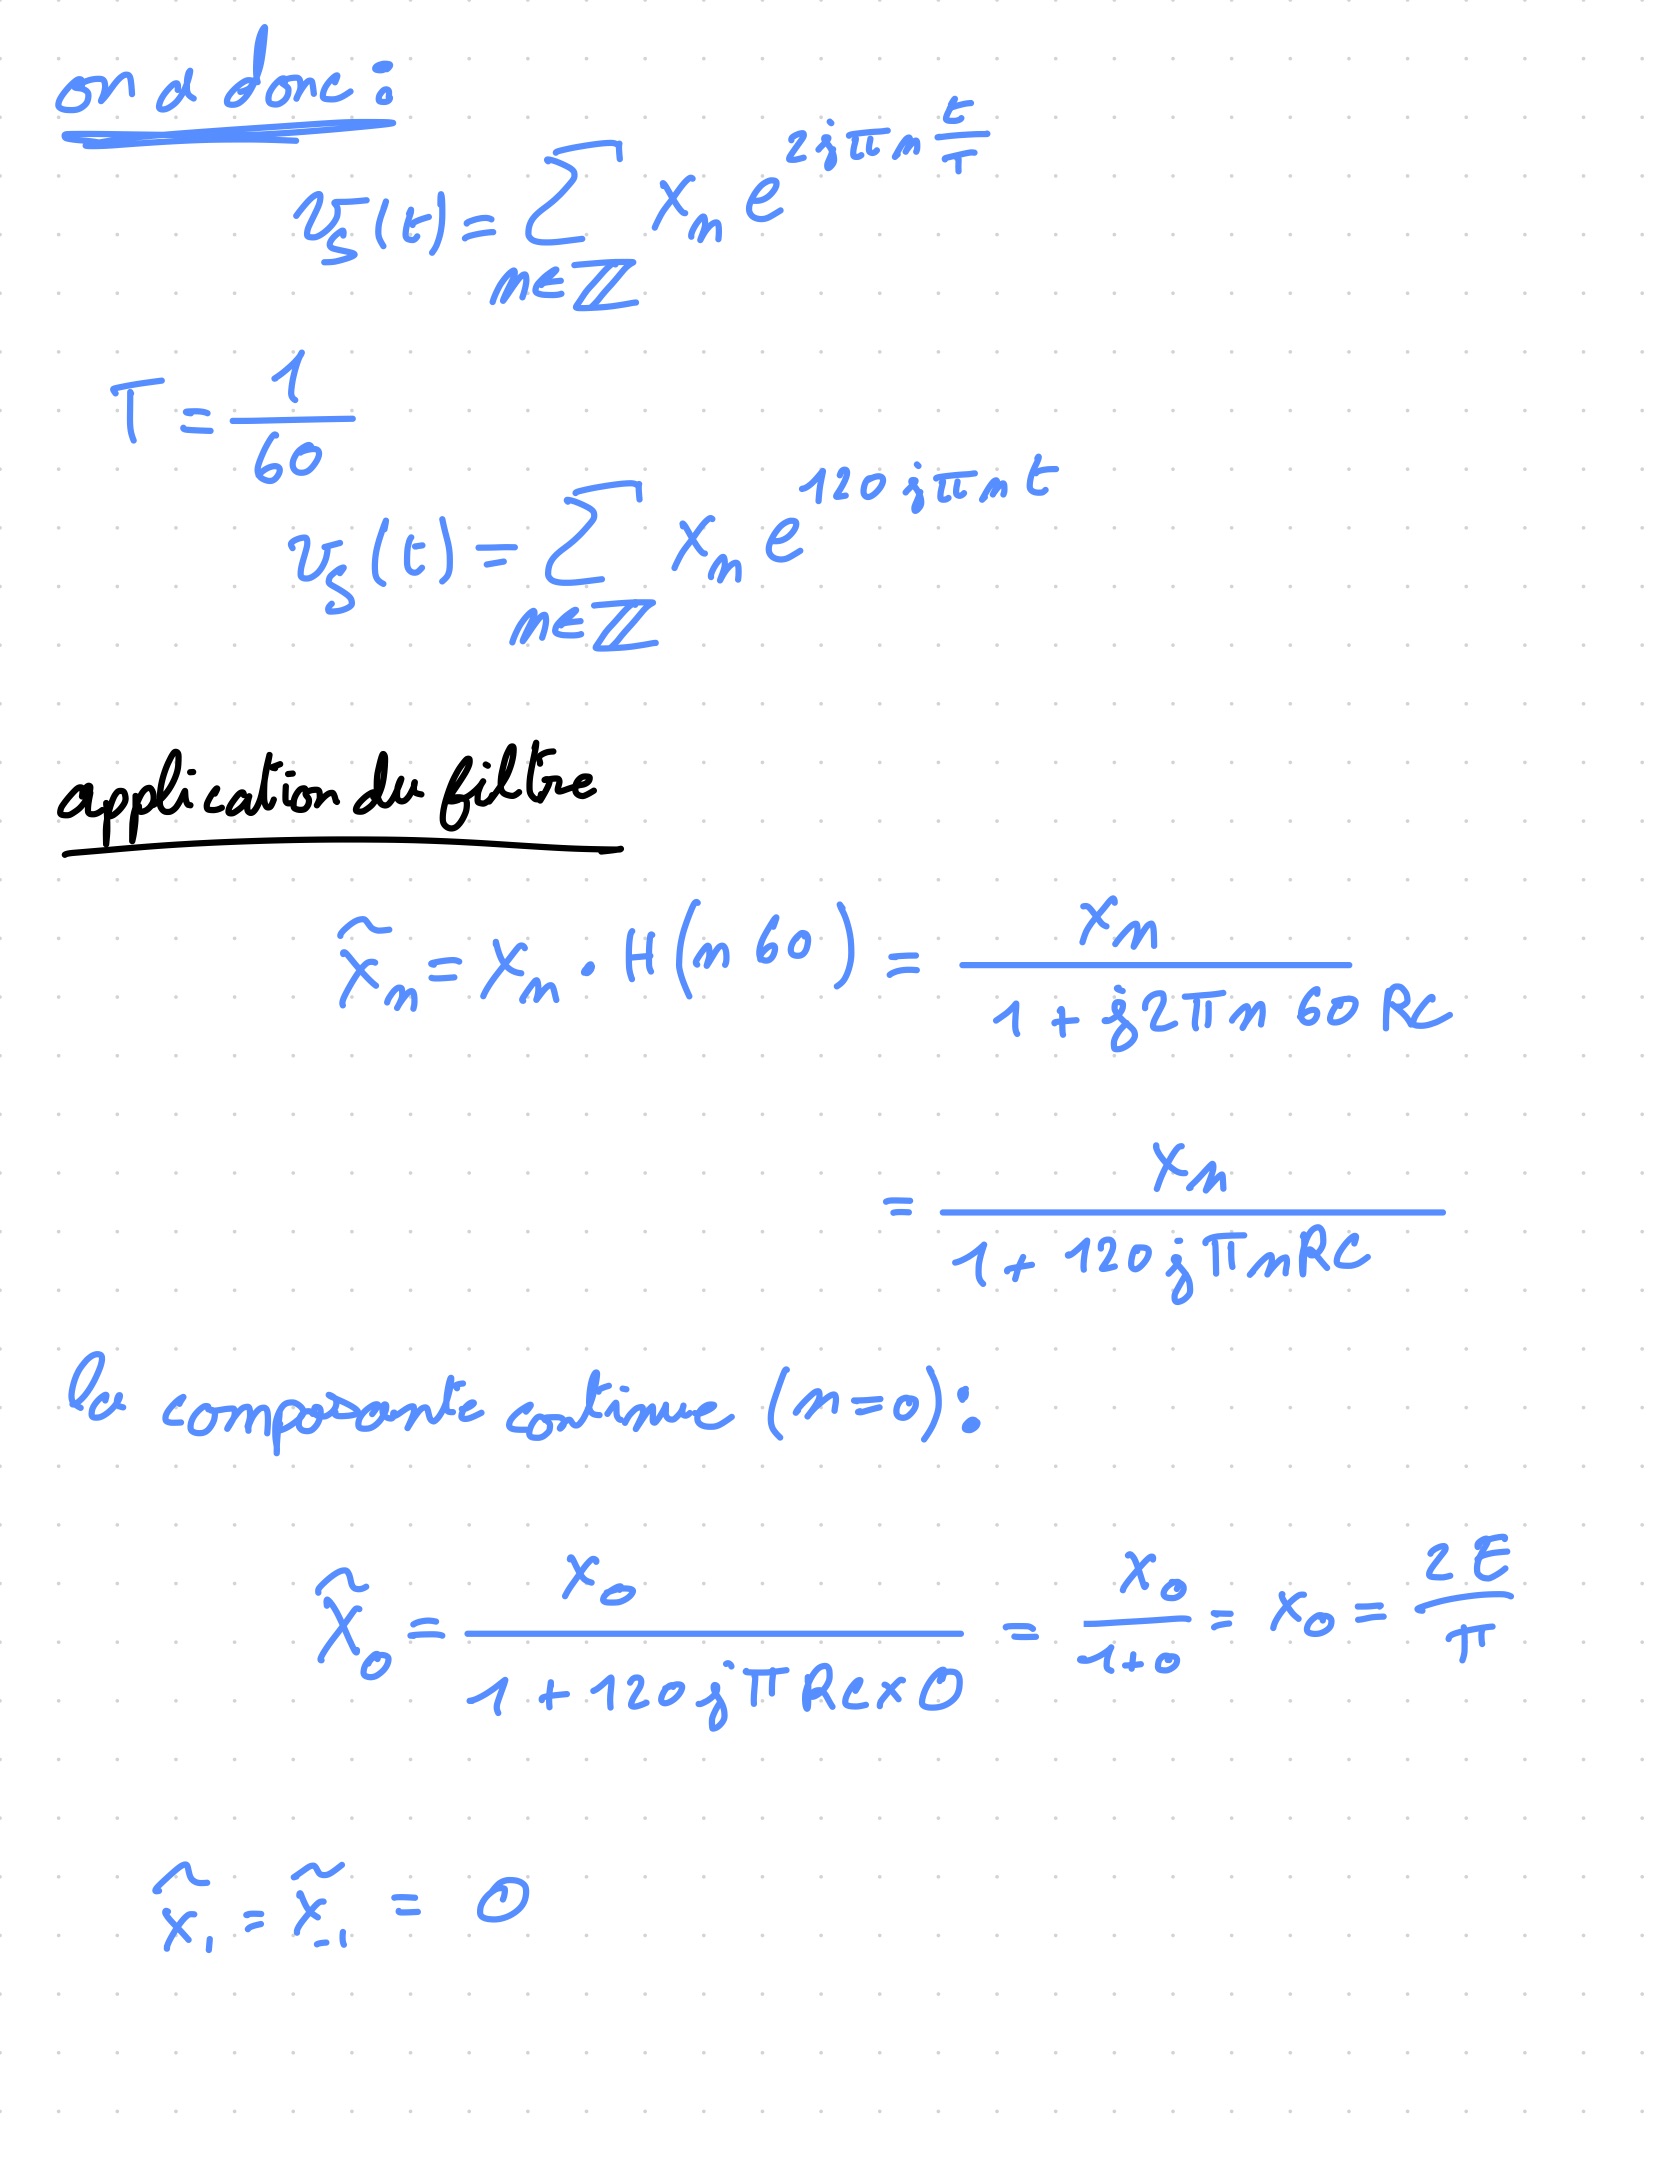 on a donc :
v_s(t) = ∑_{n∈ℤ} x_n e^{2jπn t/T}
T = 1/60
v_s(t) = ∑_{n∈ℤ} x_n e^{120jπnt}
application du filtre
x̃_n = x_n · H(n 60) = x_n / (1 + j2πn 60 RC)
= x_n / (1 + 120jπnRC)
la composante continue (n=0) :
x̃_0 = x_0 / (1 + 120jπRC×0) = x_0 / (1+0) = x_0 = 2E/π
x̃_1 = x̃_{-1} = 0